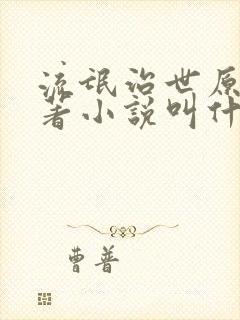 流氓治世原
著小說叫什
曹普